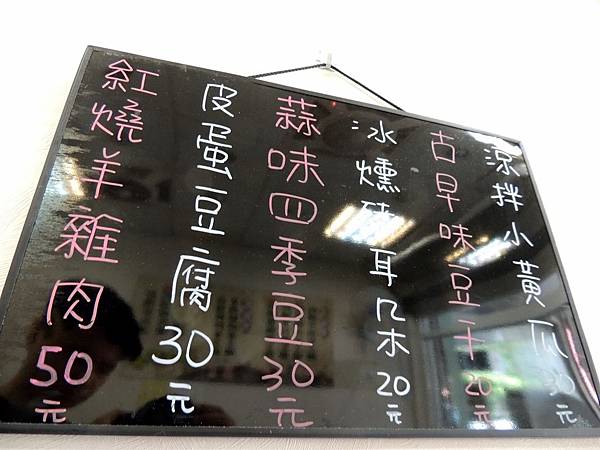 涼拌小黃瓜30元
古早味豆干20元
冰燻豬耳朵20元
蒜味四季豆30元
皮蛋豆腐30元
紅燒羊雜肉50元